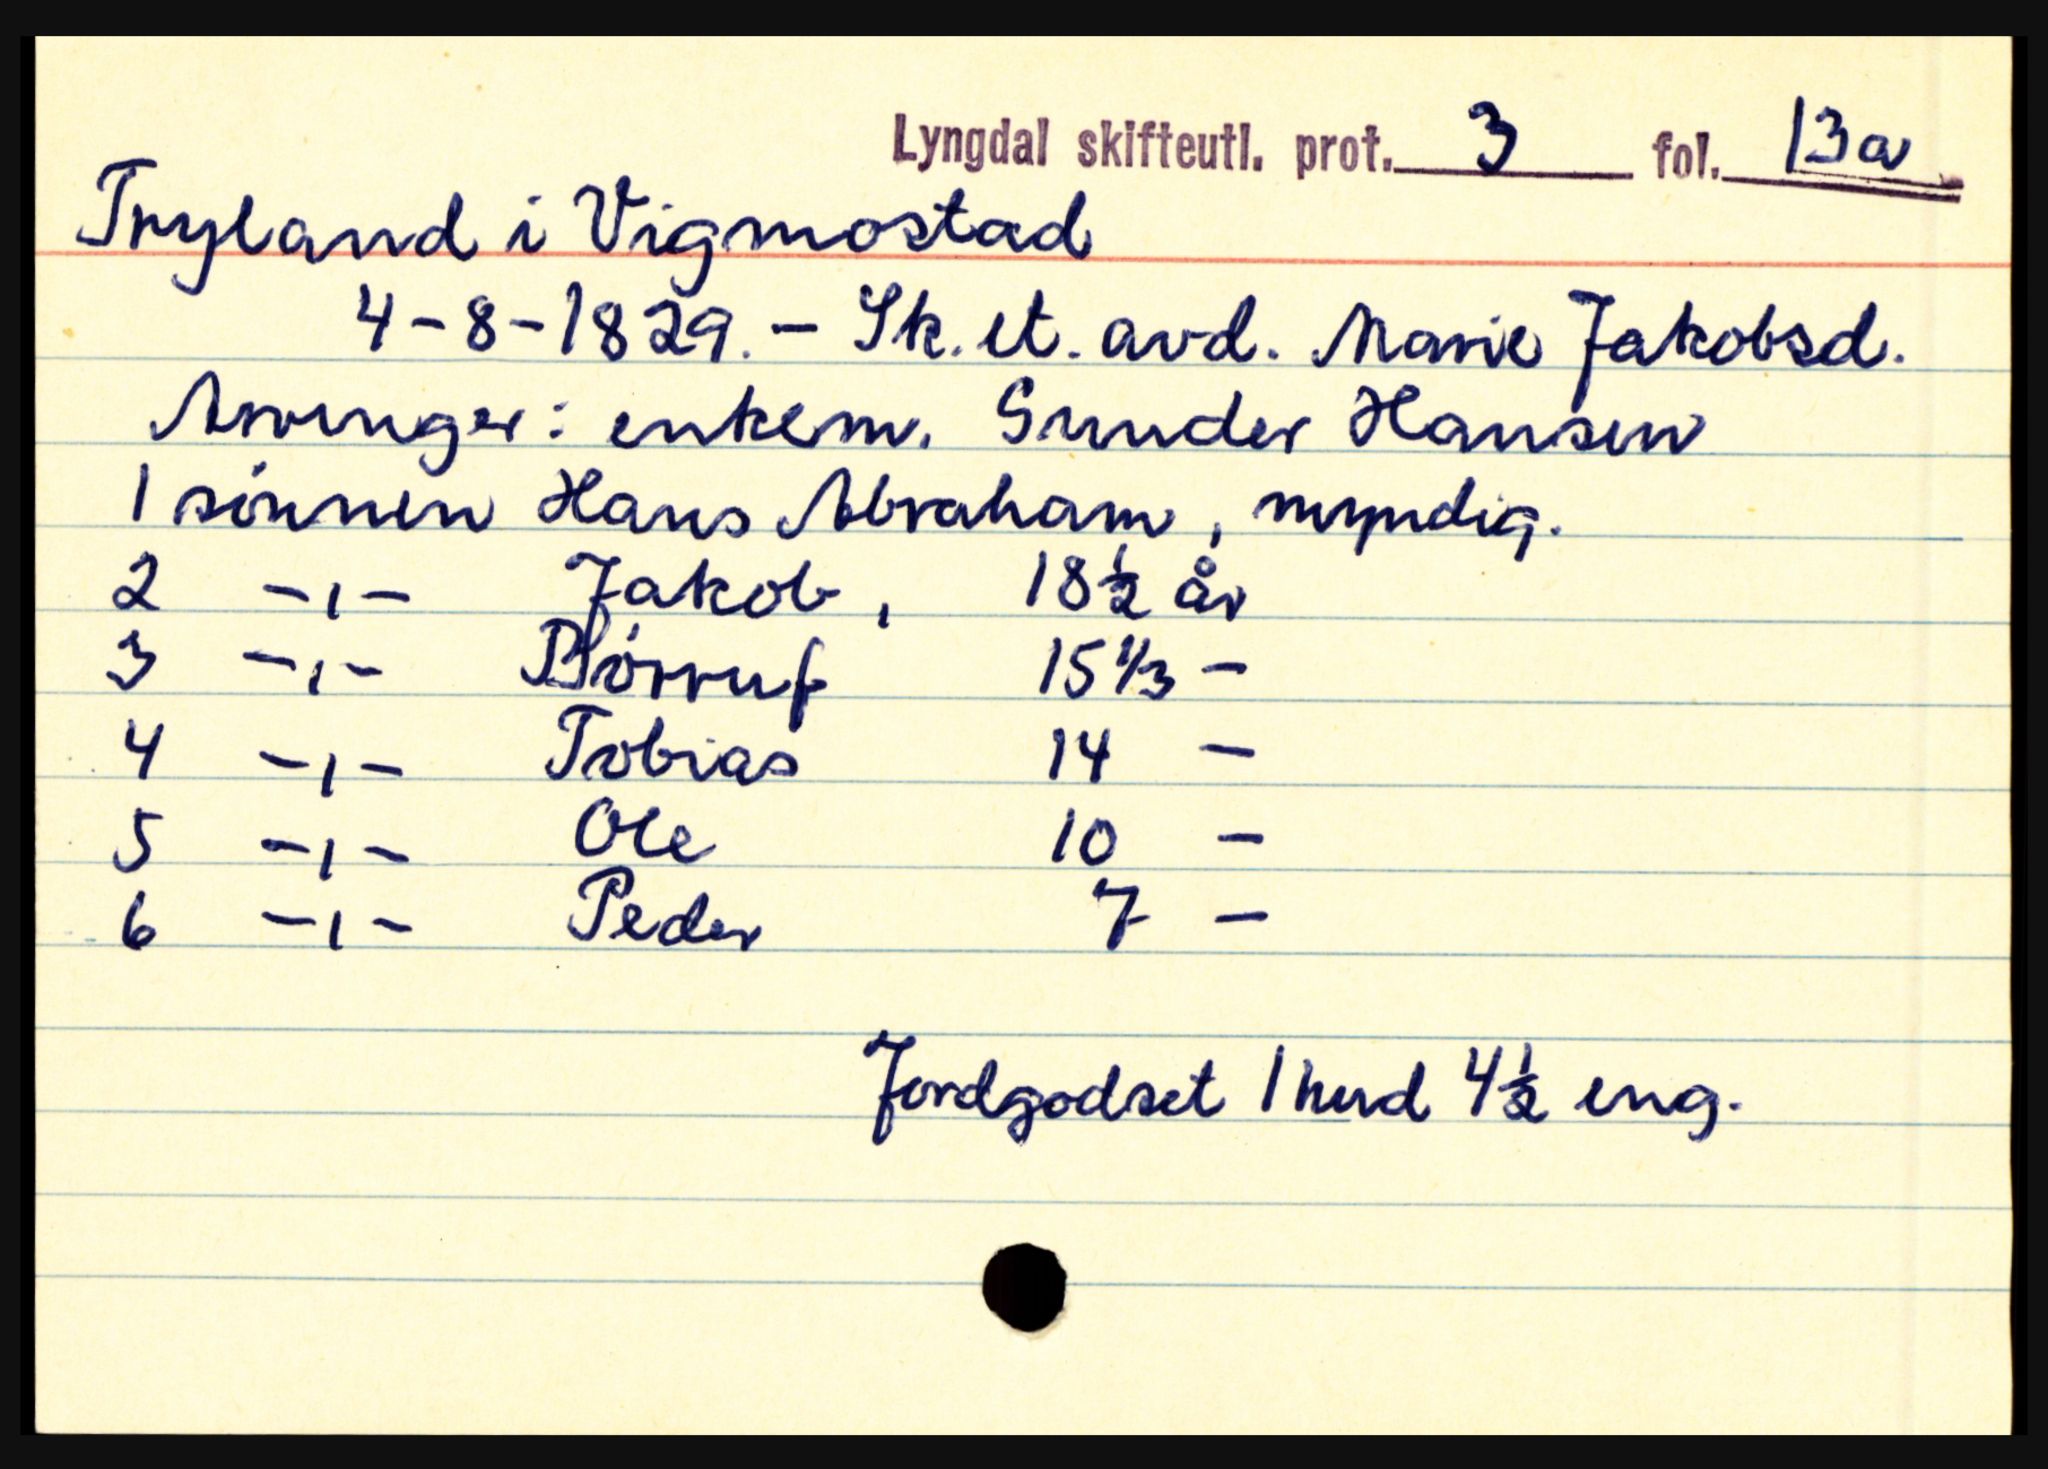 Lyngdal skifteutl. prot. 3 fol. 13a
Tryland i Vigmostad
4-8-1829. - Sk. et. avd. Marie Jakobsd.
Arvinger: enkem. Gunder Hansen
1 sónnen Hans Abraham, myndig.
2 -,- Jakob, 18½ år
3 -,- Bórruf 15⅓ -
4 -,- Tobias 14 -
5 -,- Ole 10 -
6 -,- Peder 7 -
Jordgodset 1 hud 4½ eng.